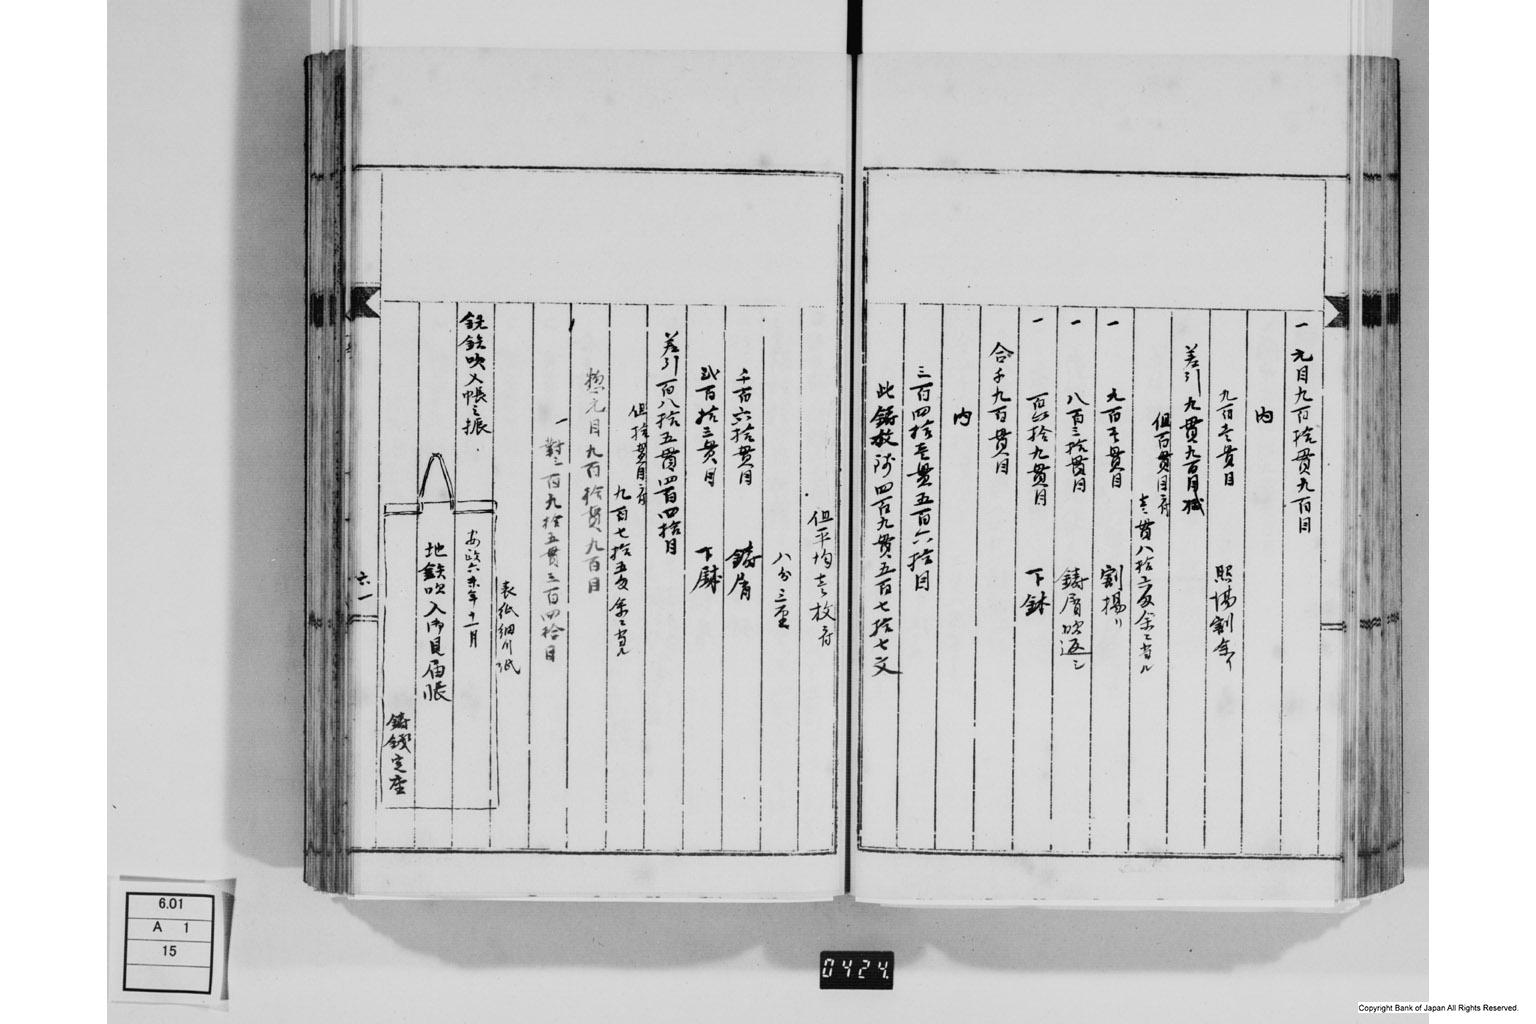 一 元目九百拾貫九百目
内
九百壱貫目 照場割金イ
差引 九貫九百目減
但百貫目ニ付
壱貫八拾六匁余ニ当ル
一 九百壱貫目 割場リ
一 八百三拾貫目 鋳屑吹返シ
一 百六拾九貫目 下鉢
合千九百貫目
内
三百四拾壱貫五百六拾目
此鋳放 四百九貫五百七拾七文
但平均壱枚ニ付
八分三厘
千百六拾貫目 鋳屑
弐百拾三貫目 下
差引百八拾五貫四百四拾目
但拾貫目ニ付
九百七拾五匁余ニ当ル
惣元目九百拾貫九百目
一 對三百九拾五貫三百四拾目
表紙細川紙
銑鉄吹入帳之振
安政六未年十一月
地鉄吹入御見届帳
鋳銭定座
六一
6.01
A 1
15
0424
Copyright Bank of Japan All Rights Reserved.